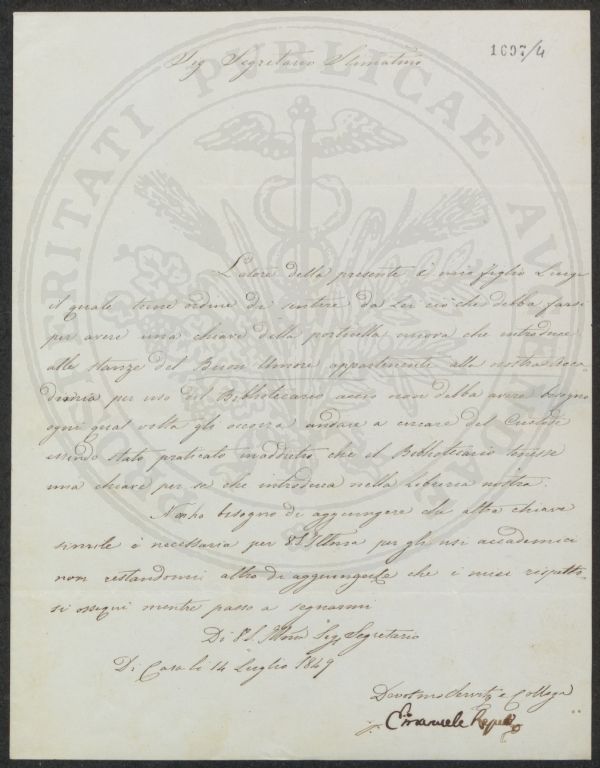 1697/4
Sig Segretario Stimatmo
POSTERITATI PUBLICAE AUGENDAE
Latore della presente è mio figlio Luigi
il quale tiene ordine di sentire da Lei ciò che debba farsi
per avere una chiave della porticella nuova che introduce
alle stanze del Buon Umore appartenenti alla nostra Acca-
demia per uso del Bibliotecario acciò non debba avere bisogno
ogni qual volta gli occorra andare a cercare del Custode
essendo stato praticato inaddietro che il Bibliotecario tenesse
una chiave per se che introduca nella libreria nostra.
Non ho bisogno di aggiungere che altra chiave
simile è necessaria per V S Illma per gli usi accademici
non restandomi altro di aggiungerle che i miei rispetto-
si ossequi mentre passo a segnarmi
Di V. S. Illma Sig. Segretario
Di Casa li 14 Luglio 1849
Devotmo Servitre e Collega
Emanuele Repetti